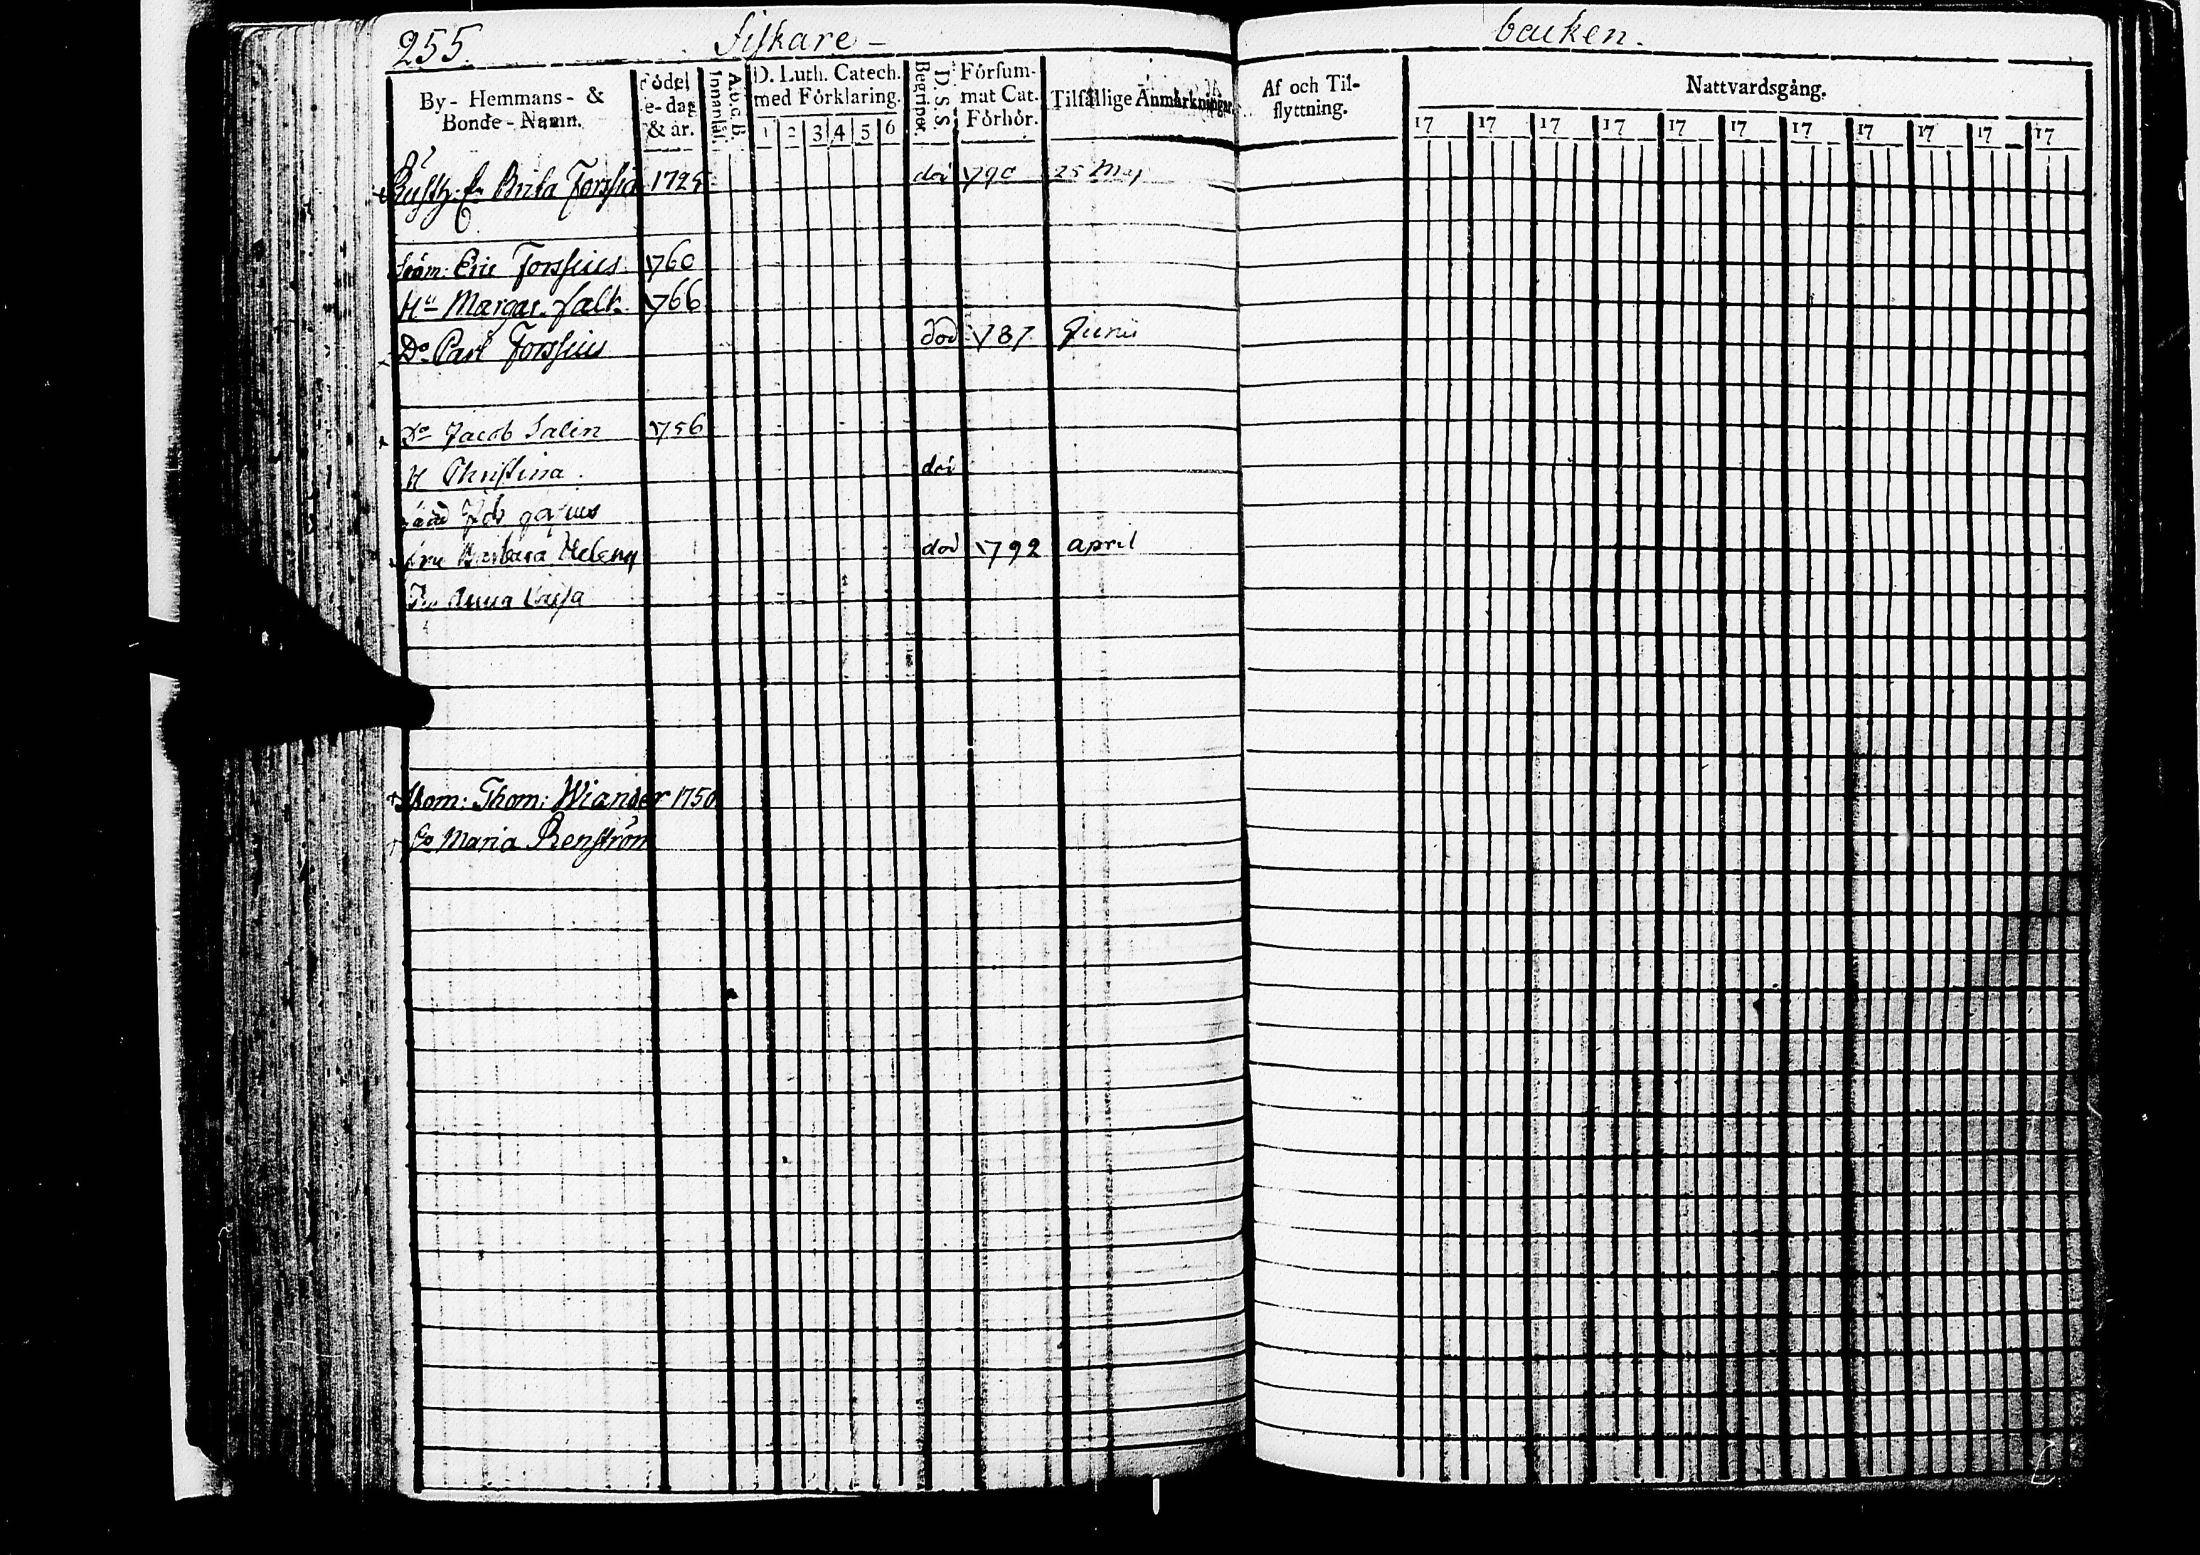 255. Fiskare - backen.
By- Hemmans- & Bonde-Namn.
Födelse-dag & år.
A.b.c.B. Innanläs.
D. Luth. Catech. med Förklaring.
1 2 3 4 5 6
D. S. S. Begriper.
Försummat Cat. Förhör.
Tilfällige Anmärkningar
Af och Til-flyttning.
Nattvardsgång.
17 17 17 17 17 17 17 17 17 17 17
Brita 1725 död 1790 25 Maj
Eric Forssius 1760
Hu Margar. Falk 1766
Do Carl Forssius död 1787 Junii
Do Jacob Salin 1756
H Christina död
Barbara Helena död 1792 april
Anna Caisa
Thom: Wiander 1750
Maria Renström